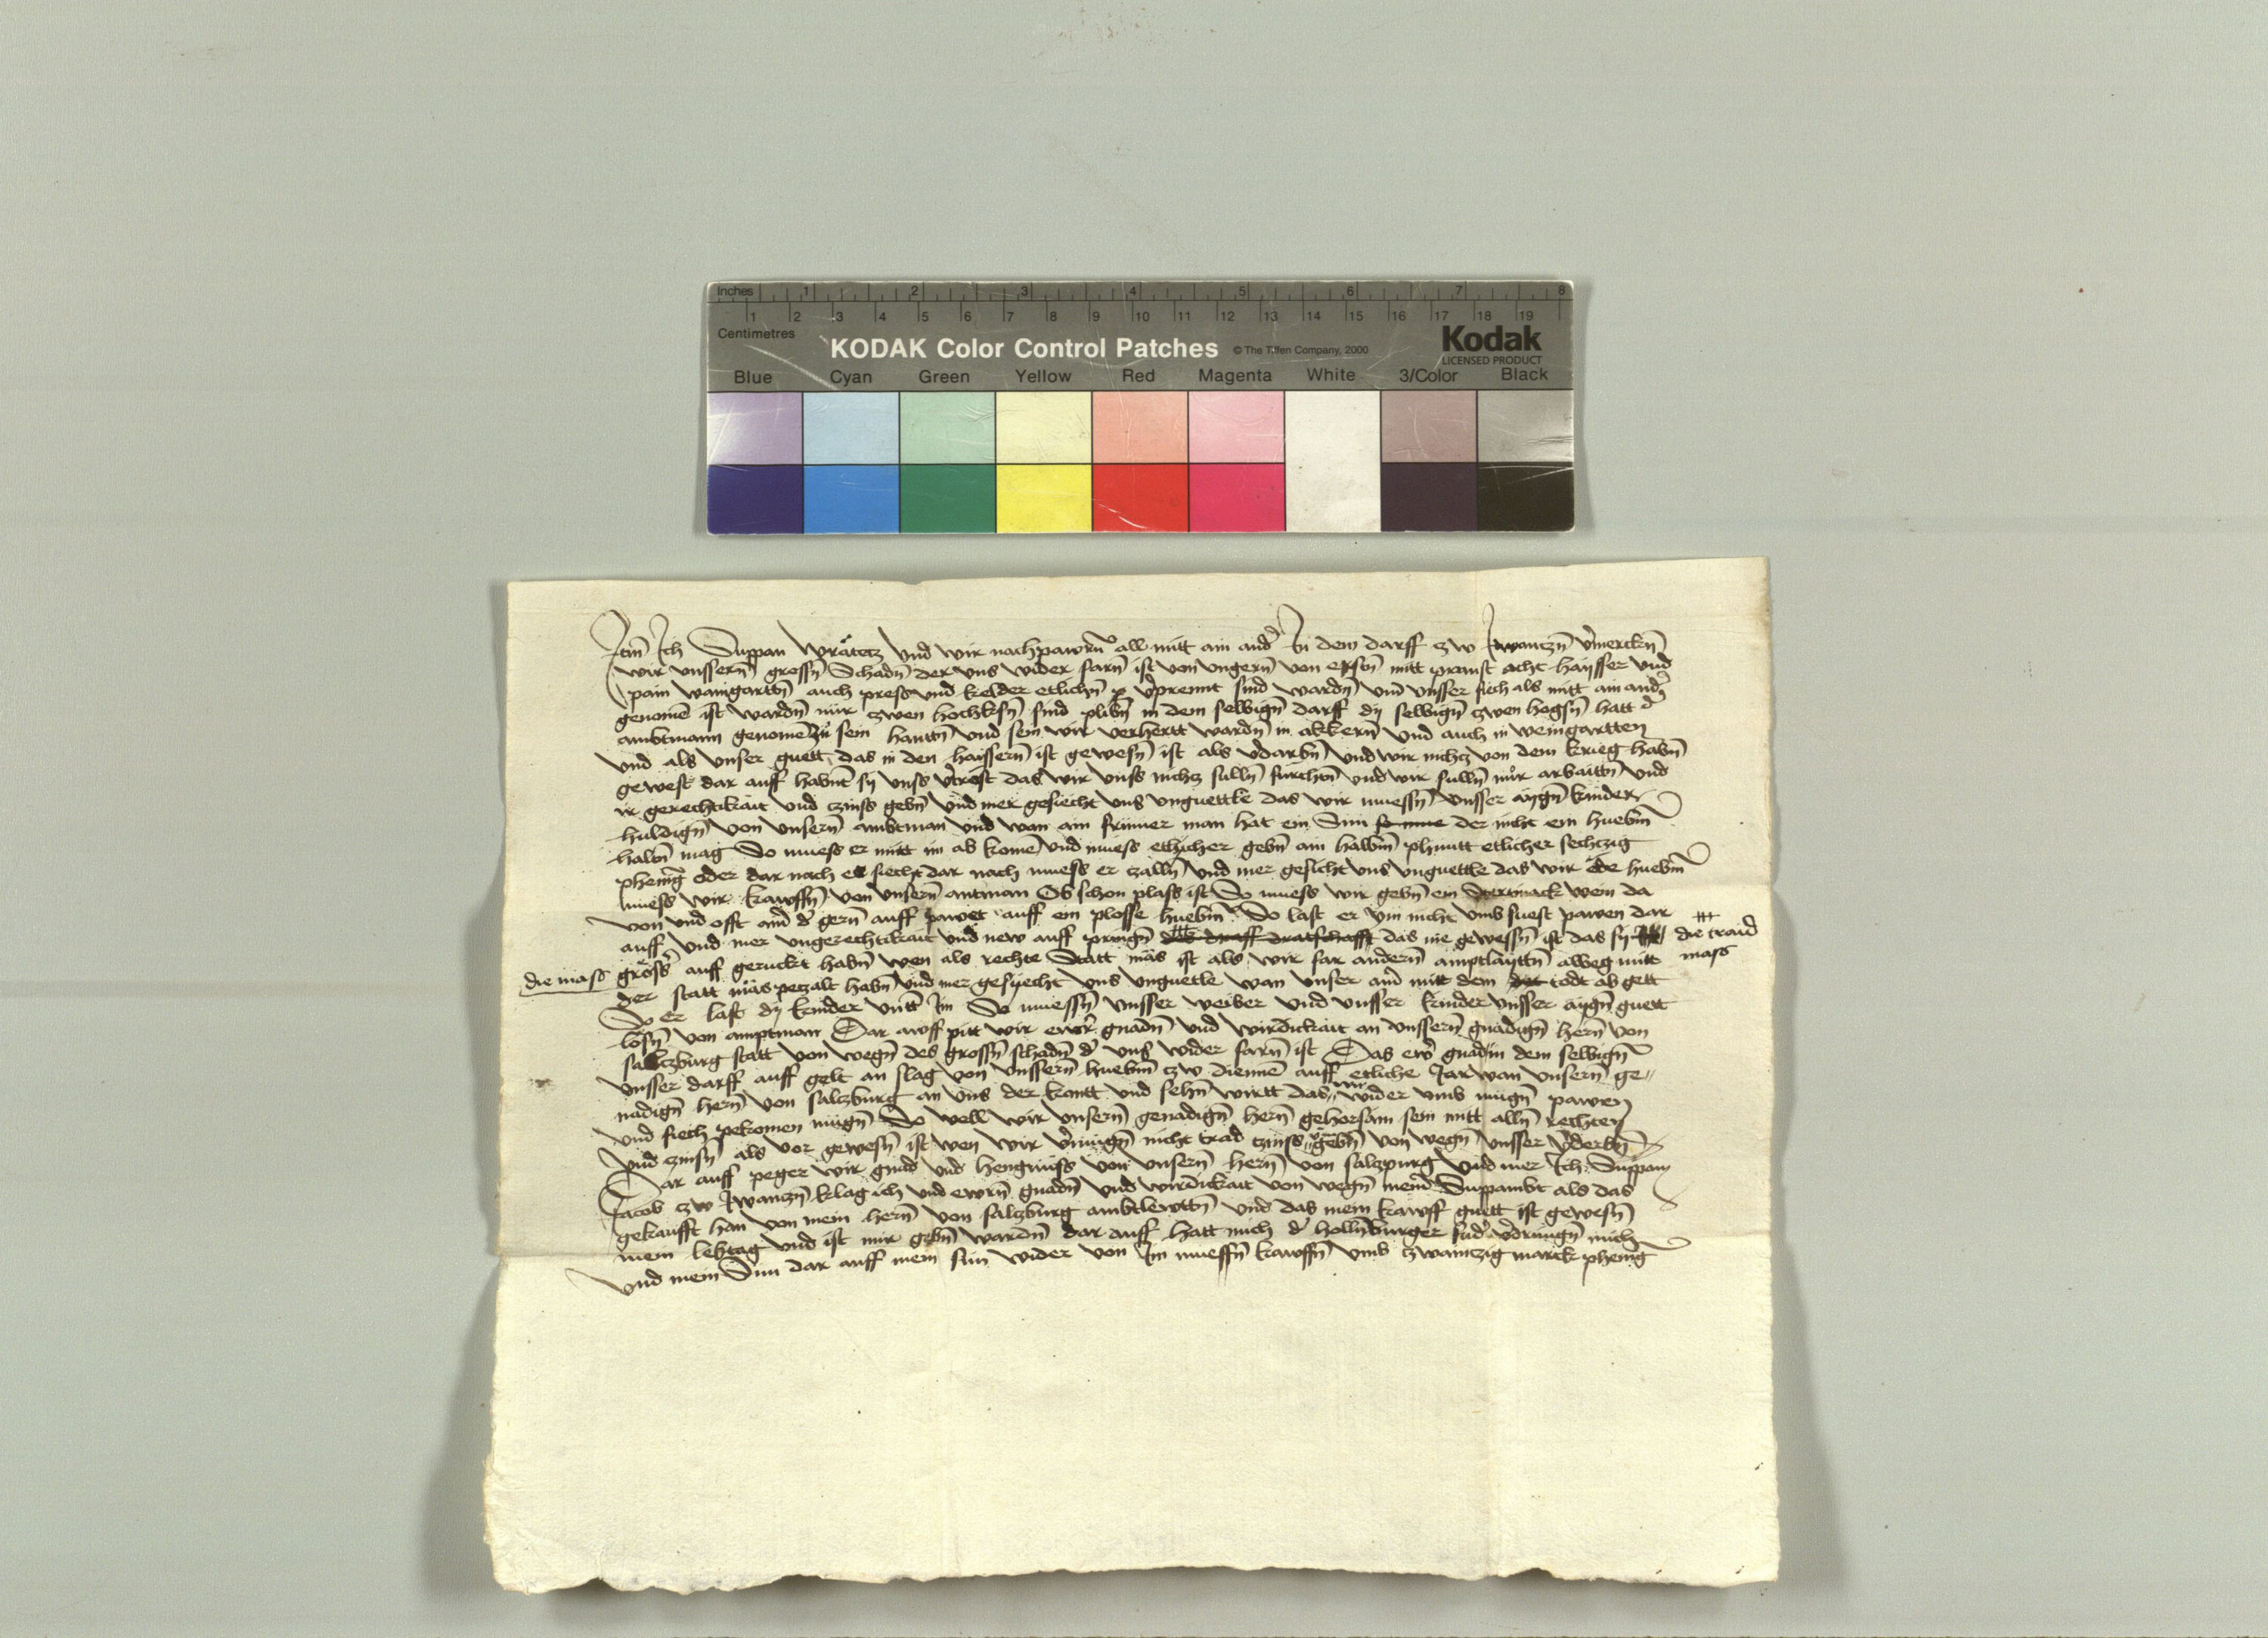 Inches 1 2 3 4 5 6 7 8
1 2 3 4 5 6 7 8 9 10 11 12 13 14 15 16 17 18 19
Centimetres
KODAK Color Control Patches © The Tiffen Company, 2000 Kodak
LICENSED PRODUCT
Blue Cyan Green Yellow Red Magenta White 3/Color Black
Itm̄ Ich Suppan Wrätetz vnd wir nachpawrn̄ all mitt ain and In dem darff zw Iwanczn̄ v̄merckn̄
wir vnssern̄ grossn̄ Schadn̄ der vns wider farn̄ ist von vngern̄ von mitt prunst acht haÿsser vnd
pain waingarttn̄ auch press vnd kelder etlichn̄ v̄prennt sind wardn̄ vnd vnsser fich als mitt ain and
genomē ist wardn̄ nur zwen sind plibn̄ in dem selbign̄ darff dÿ selbign̄ zwen hatt d̄
ambtmann genomē zu sein hanttn̄ vnd sein wir verhertt wardn̄ in äkkern̄ vnd auch in weingartten
vnd als vnser guett das in den haissern̄ ist gewesn̄ ist als v̄darbn̄ vnd wir nichz von dem krieg habn̄
gewest dar auff habnt sÿ vnss v̄trost das wir vnss nichz sulln̄ fürchtn̄ vnd wir sulln̄ nür arbaittn̄ vnd
ir gerechtikait vnd czinss gebn̄ vnd mer gesiecht vns vnguettle das wir muessn̄ vnsser aÿgn̄ kinder
huldign̄ von vnsern̄ ambtman vnd wan ain frümer man hat ein Sun der nicht ein huebm̄
haltn̄ mag So muess er mitt im ab komē vnd muess etlicher gebn̄ ain halbm̄ phuntt etlicher sechzig
phenīg oder dar nach er siecht dar nach muess er czalln̄ vnd mer gesicht vns vnguettle das wir öde huebm̄
muess wir kawffn̄ von vnsern̄ antman Ob schon plass ist So muess wir gebn̄ ein wein da
von vnd offt ain̄ d̄ gern̄ auff pawet auff ein plosse huebm̄ So last er im nicht vmb sust pawen dar
auff vnd mer vngerechtikait vnd new auff pringn̄ das nie gewessn̄ ist das sÿ die traid
mass
die mass grösss̄ auff geruckt habn̄ wen als rechte Statt mäs ist als wir far andern̄ amptläyttn̄ albeg mitt
der statt mäs petzalt habn̄ vnd mer gesiecht vns vnguetle wan vnser ain̄ mitt dem todt ab gett
So er last dÿ kinder vntt Im So muessn̄ vnsser weiber vnd vnsser kinder vnsser aÿgn̄ guett
lösn̄ von amptman Dar awff pitt wir ewr̄ gnadn̄ vnd wirdickait an vnssern̄ gnadign̄ hern̄ von
saltzburg statt von wegn̄ des grossn̄ schadn̄ d̄ vns wider farn̄ ist Das ewr̄ gnad in dem selbign̄
vnsser darff auff gelt an slag von vnssern̄ huebm̄ zw diennē auff etliche Jar wan vnsern̄ ge-
nadign̄ hern̄ von salczburg an vns der kantt vnd sehn̄ wirtt das wir wider vmb mügn̄ pawen
vnd fiech pekomen mügn̄ So well wir vnsern̄ genadign̄ hern̄ gehorsam sein mitt alln̄ rechten
vnd zinsn̄ als vor gewesn̄ ist wen wir v̄mugn̄ nicht trad czinss gebn̄ von wegn̄ vnsser v̄derbn̄
Dar auff peger wir gnad vnd hengnüss von vnsern̄ hern̄ von salczpurg vnd mer Ich Suppan
Jacob zw Iwanczn̄ klag ich vnd ewrn̄ gnadn̄ vnd wirdickait von wegn̄ meins Suppambt als das
gekaufft han von mein hern̄ von salczburg ambtlewttn̄ vnd das mein kawff guett ist gewesn̄
mein lebtag vnd ist mir gebn̄ wardn̄ dar auff hatt mich d̄ hollnburger v̄drungn̄ mich
vnd mein Sun dar auff mein sun wider von Im muessn̄ kawffn̄ vmb zwainczig marck phenīg